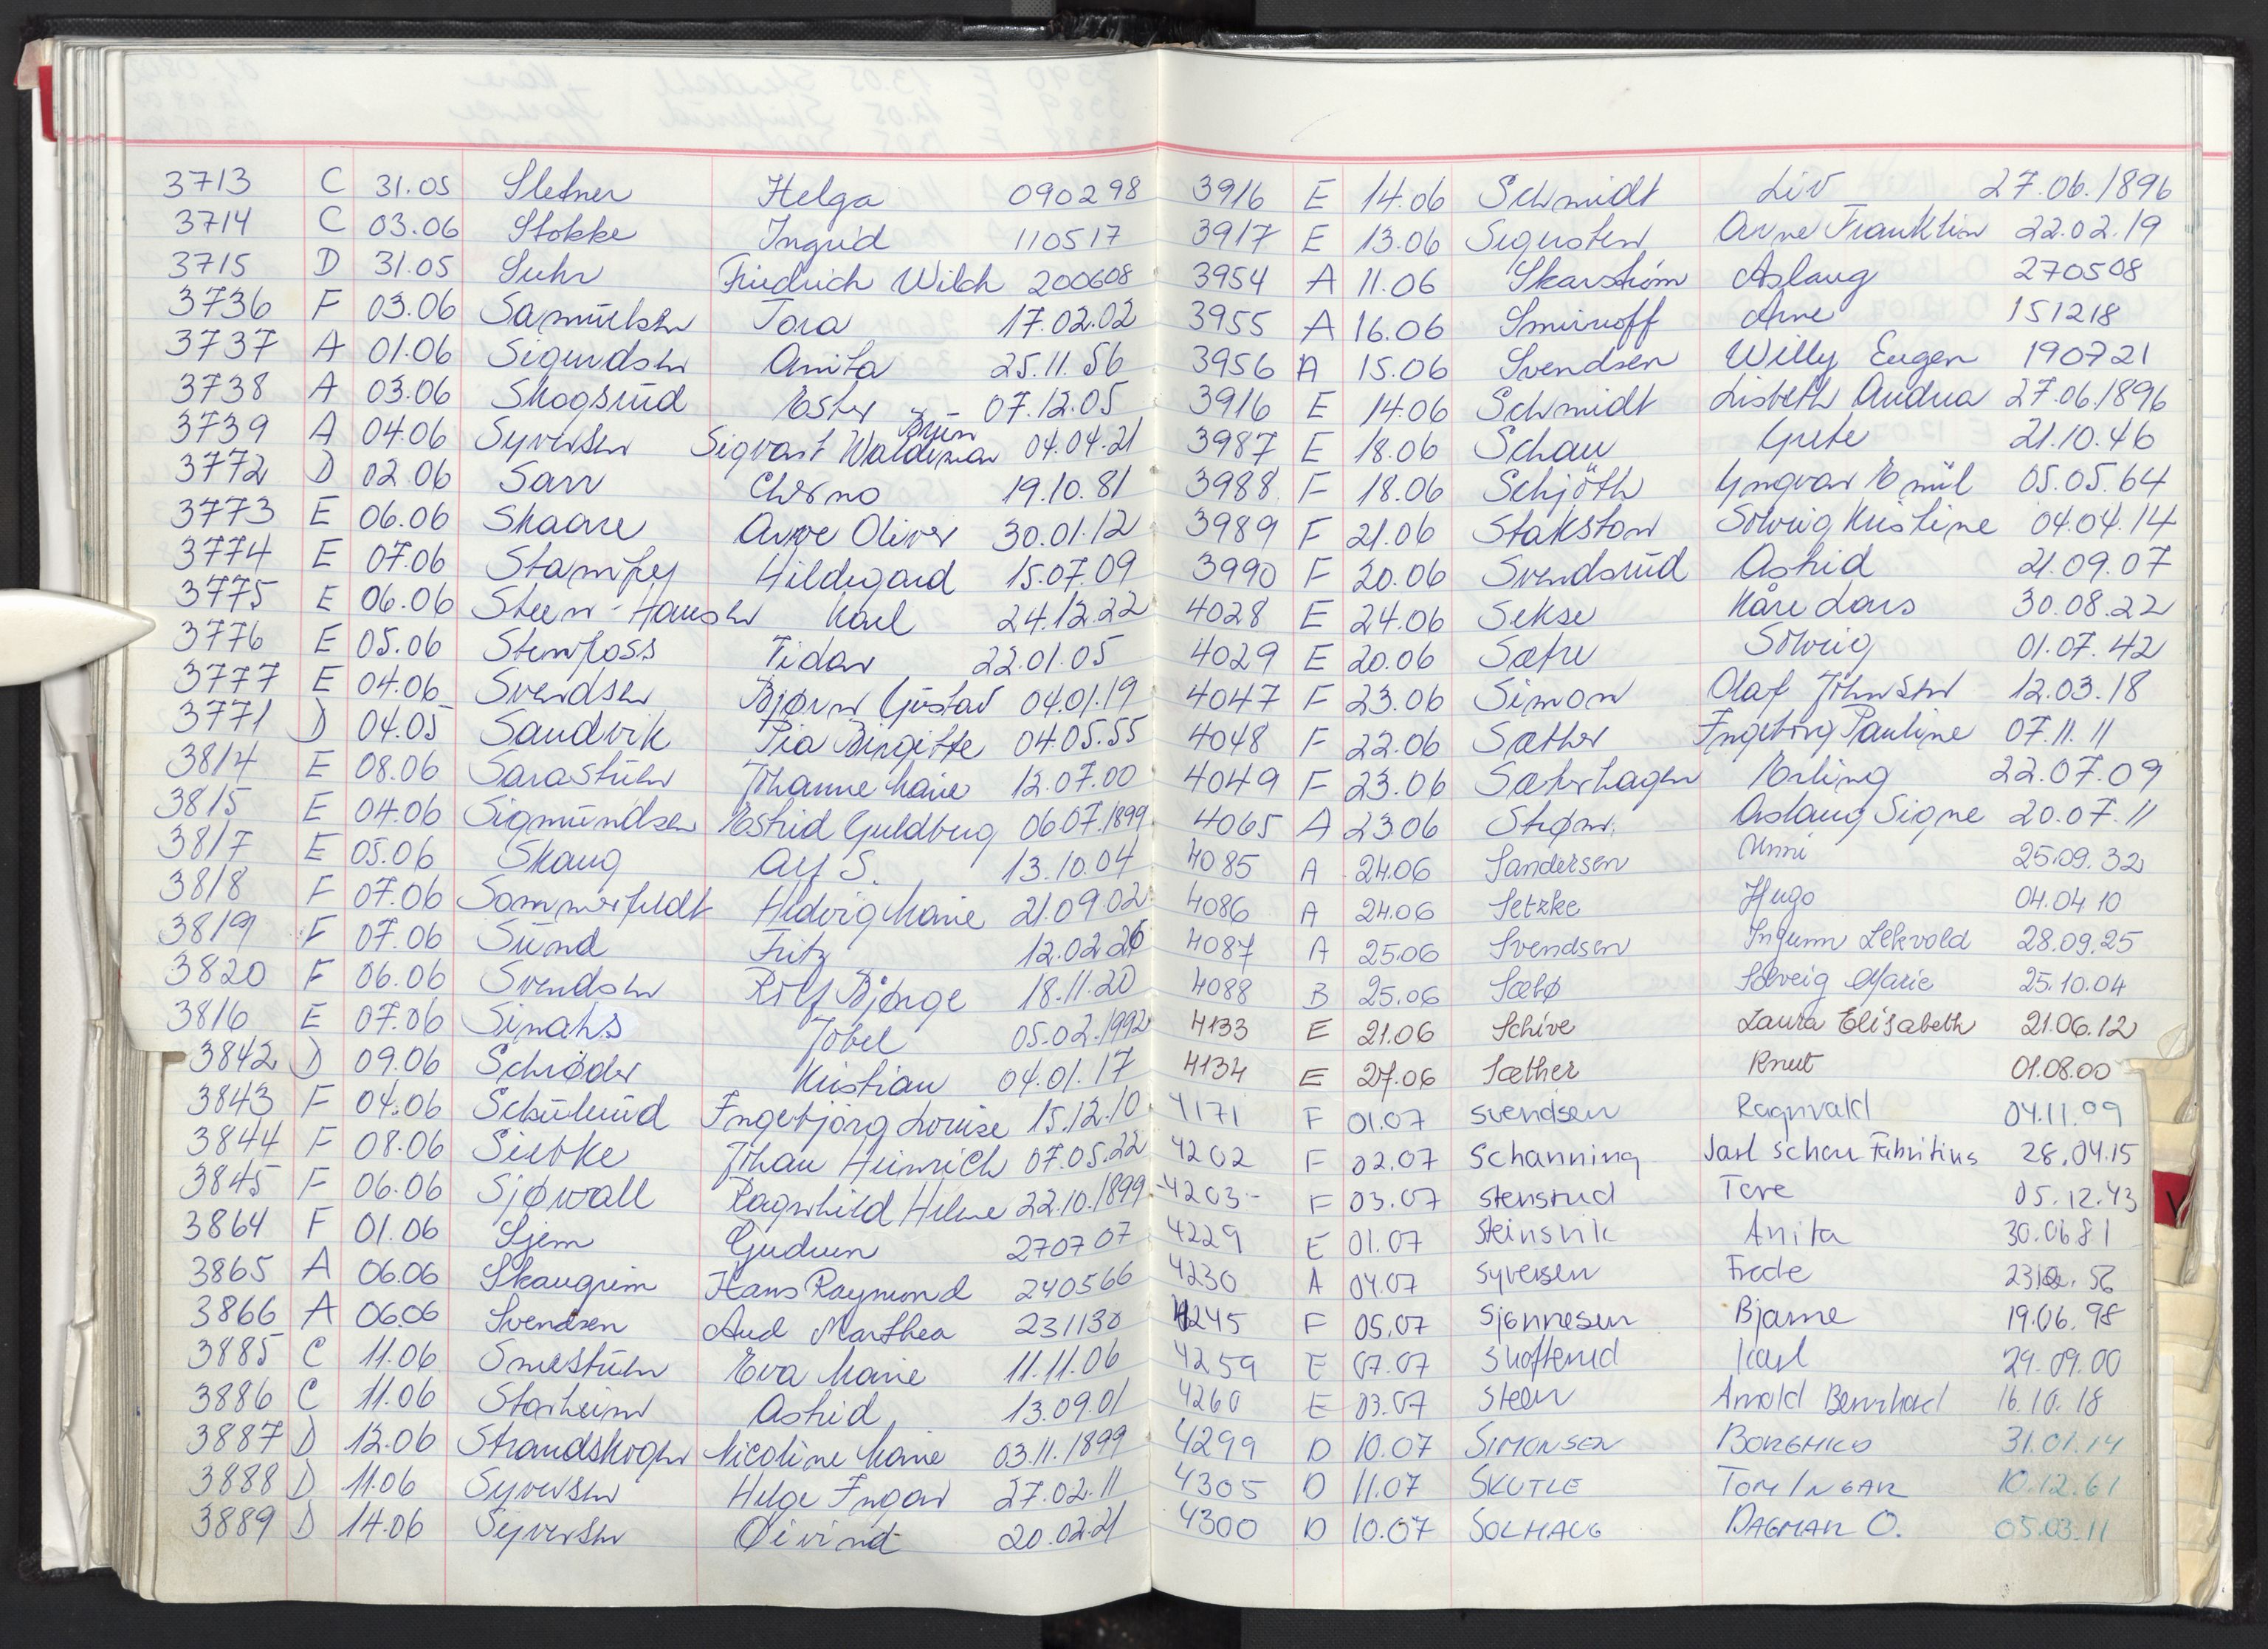 3713 C 31.05 Sletner Helga 090298
3714 C 03.06 Stokke Ingrid 110517
3715 D 31.05 Suhr Friedrich Wilch 200608
3736 F 03.06 Samuelsen Tora 17.02.02
3737 A 01.06 Sigurdsen Anita 25.11.56
3738 A 03.06 Skogsrud Ester 07.12.05
Brün
3739 A 04.06 Syversen Sigvart Waldemar 04.04.21
3772 D 02.06 Sarr Cherno 19.10.81
3773 E 06.06 Skaare Arve Oliver 30.01.12
3774 E 07.06 Stampey Hildegard 15.07.09
3775 E 06.06 Steen-Hansen Karl 24.12.22
3776 E 05.06 Stenfoss Fidar 22.01.05
3777 E 04.06 Svendsen Bjørn Gustav 04.01.19
3771 D 04.05 Sandvik Pia Birgitte 04.05.55
3814 E 08.06 Sarastuen Johanne Marie 12.07.00
3815 E 04.06 Sigmundsen Estrid Guldberg 06.07.1899
3817 E 05.06 Skaug Alf S. 13.10.04
3818 F 07.06 Sommerfeldt Hedvig Marie 21.09.02
3819 F 07.06 Sund Fritz 12.02.26
3820 F 06.06 Svendsen Rolf Bjørge 18.11.20
3816 E 07.06 Simahs Jobel 05.02.1992
3842 D 09.06 Schrøder Kristian 04.01.17
3843 F 04.06 Schulerud Ingebjørg Louise 15.12.10
3844 F 08.06 Siebke Johan Heinrich 07.05.22
3845 F 06.06 Sjøwall Ragnhild Helene 22.10.1899
3864 F 01.06 Sjem Gudrun 270707
3865 A 06.06 Skaugrim Hans Raymond 240566
3866 A 06.06 Svendsen Aud Marthea 231130
3885 C 11.06 Smestuen Eva Marie 11.11.06
3886 C 11.06 Starheim Astrid 13.09.01
3887 D 12.06 Strandskogen Nicoline Marie 03.11.1899
3888 D 11.06 Syversen Helge Ingar 27.02.11
3889 D 14.06 Syversen Øivind 20.02.21
3916 E 14.06 Schmidt Liv 27.06.1896
3917 E 13.06 Sigursten Arne Franklin 22.02.19
3954 A 11.06 Skarstrøm Aslaug 270508
3955 A 16.06 Smirnoff Arne 151218
3956 A 15.06 Svendsen Willy Eugen 190721
3916 E 14.06 Schmidt Lisbeth Andrea 27.06.1896
3987 E 18.06 Schau Grete 21.10.46
3988 F 18.06 Schjöth Yngvar Emil 05.05.64
3989 F 21.06 Stakston Solveig Kristine 04.04.14
3990 F 20.06 Svendsrud Astrid 21.09.07
4028 E 24.06 Sekse Kåre Lars 30.08.22
4029 E 20.06 Sætre Solveig 01.07.42
4047 F 23.06 Simon Olaf Johnsen 12.03.18
4048 F 22.06 Sæther Ingeborg Pauline 07.11.11
4049 F 23.06 Sæterhagen Erling 22.07.09
4065 A 23.06 Strøm Aslaug Signe 20.07.11
4085 A 24.06 Sandersen Unni 25.09.32
4086 A 24.06 Setzke Hugo 04.04 10
4087 A 25.06 Svendsen Ingunn Lekvold 28.09.25
4088 B 25.06 Sæbø Solveig Marie 25.10.04
4133 E 21.06 Schive Laura Elisabeth 21.06.12
4134 E 27.06 Sæther Knut 01.08.00
4171 F 01.07 Svendsen Ragnvald 04.11.09
4202 F 02.07 Schanning Jarl Schou Fabritius 28.04.15
4203 F 03.07 Stensrud Tore 05.12.43
4229 E 01.07 Steinsvik Anita 30.06.81
4230 A 04.07 Syversen Frode 56
4245 F 05.07 Sjonnesen Bjarne 19.06.98
4259 E 07.07 Skofterud Karl 29.09.00
4260 E 03.07 Steen Arnold Bernhard 16.10.18
4299 D 10.07 SIMONSEN BORGHILD 31.01.14
4305 D 11.07 SKUTLE TOM INGAR 10.12.61
4300 D 10.07 SOLHAUG DAGMAR O. 05.03.11